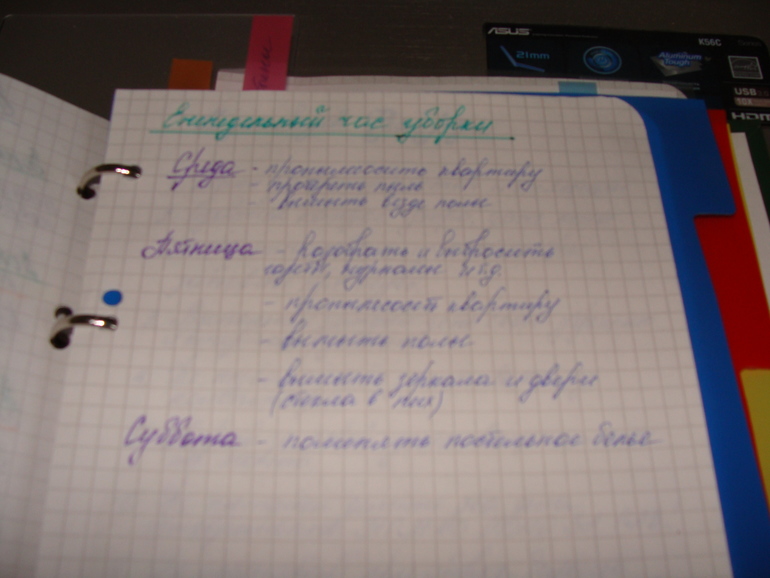 ASUS
K56C
21mm
Aluminum
USB
HDMI
Еженедельный час уборки
Среда - пропылесосить квартиру
- протереть пыль
- вымыть везде полы
Пятница - разобрать и выбросить
газеты, журналы и т.д.
- пропылесосит квартиру
- вымыть полы
- вымыть зеркала и двери
(стекла в них)
Суббота - поменять постельное белье